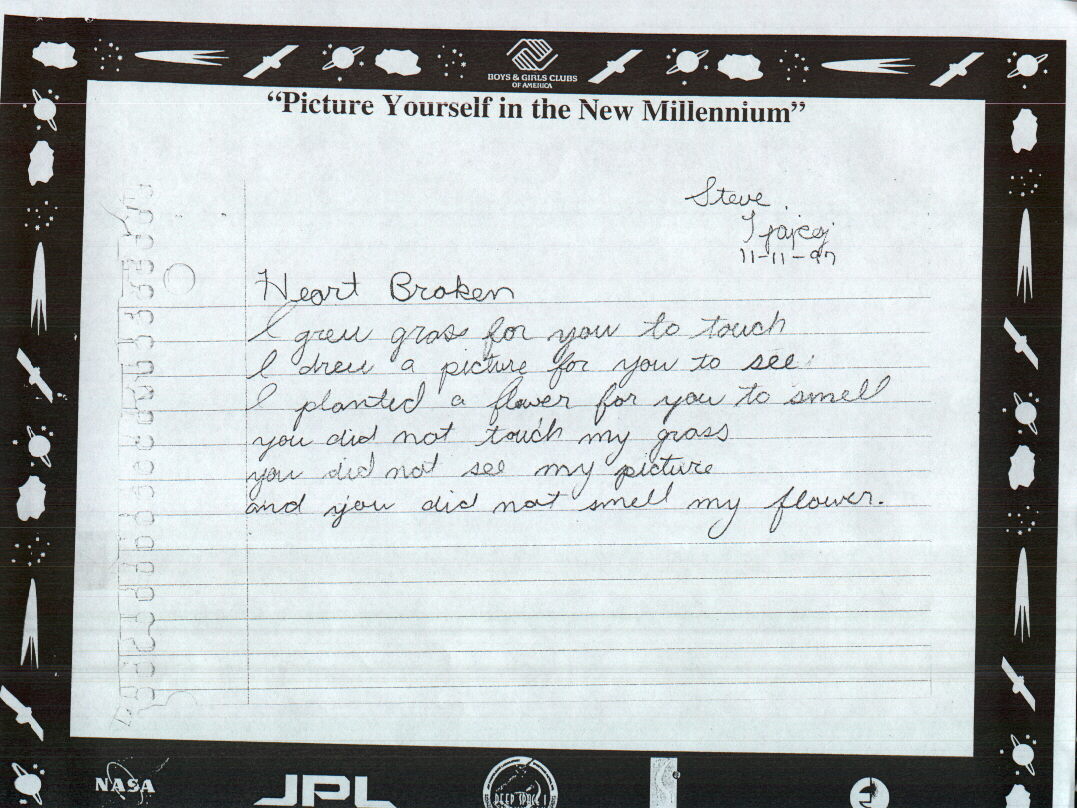 BOYS & GIRLS CLUBS
OF AMERICA
“Picture Yourself in the New Millennium”
Steve
11-11-97
Heart Broken
I grew grass for you to touch
I drew a picture for you to see
I planted a flower for you to smell
you did not touch my grass
you did not see my picture
and you did not smell my flower.
NASA
JPL
DEEP SPACE 1